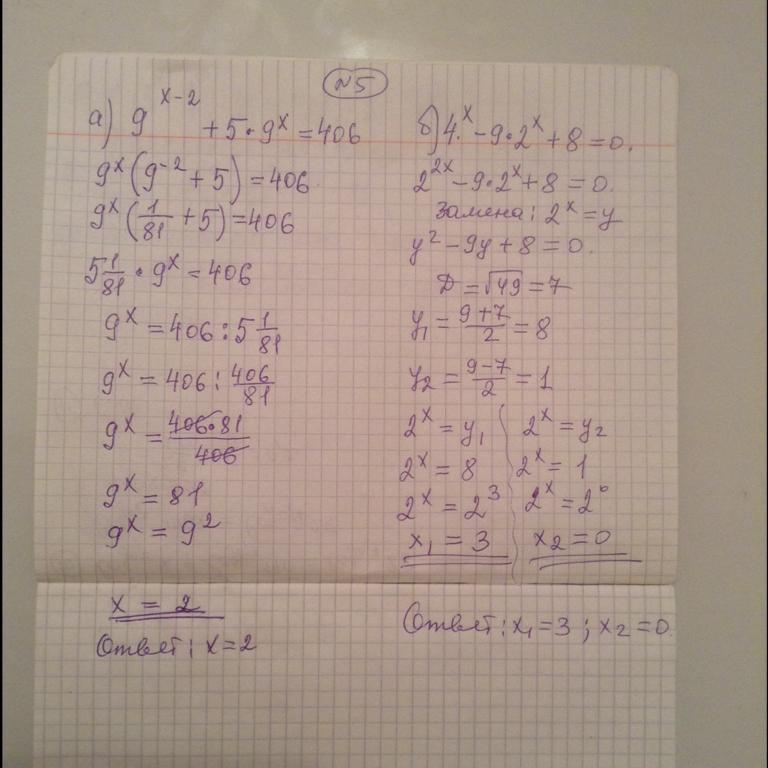 №5
а) 9^(x-2) + 5 · 9^x = 406
9^x (9^-2 + 5) = 406
9^x (1/81 + 5) = 406
5 1/81 · 9^x = 406
9^x = 406 : 5 1/81
9^x = 406 : 406/81
9^x = 406·81/406
9^x = 81
9^x = 9^2
x = 2
Ответ: x=2
б) 4^x - 9·2^x + 8 = 0.
2^2x - 9·2^x + 8 = 0.
Замена: 2^x = y
y^2 - 9y + 8 = 0.
D = √49 = 7
y₁ = 9+7/2 = 8
y₂ = 9-7/2 = 1
2^x = y₁ 2^x = y₂
2^x = 8 2^x = 1
2^x = 2^3 2^x = 2^0
x₁ = 3 x₂ = 0
Ответ: x₁ = 3 ; x₂ = 0